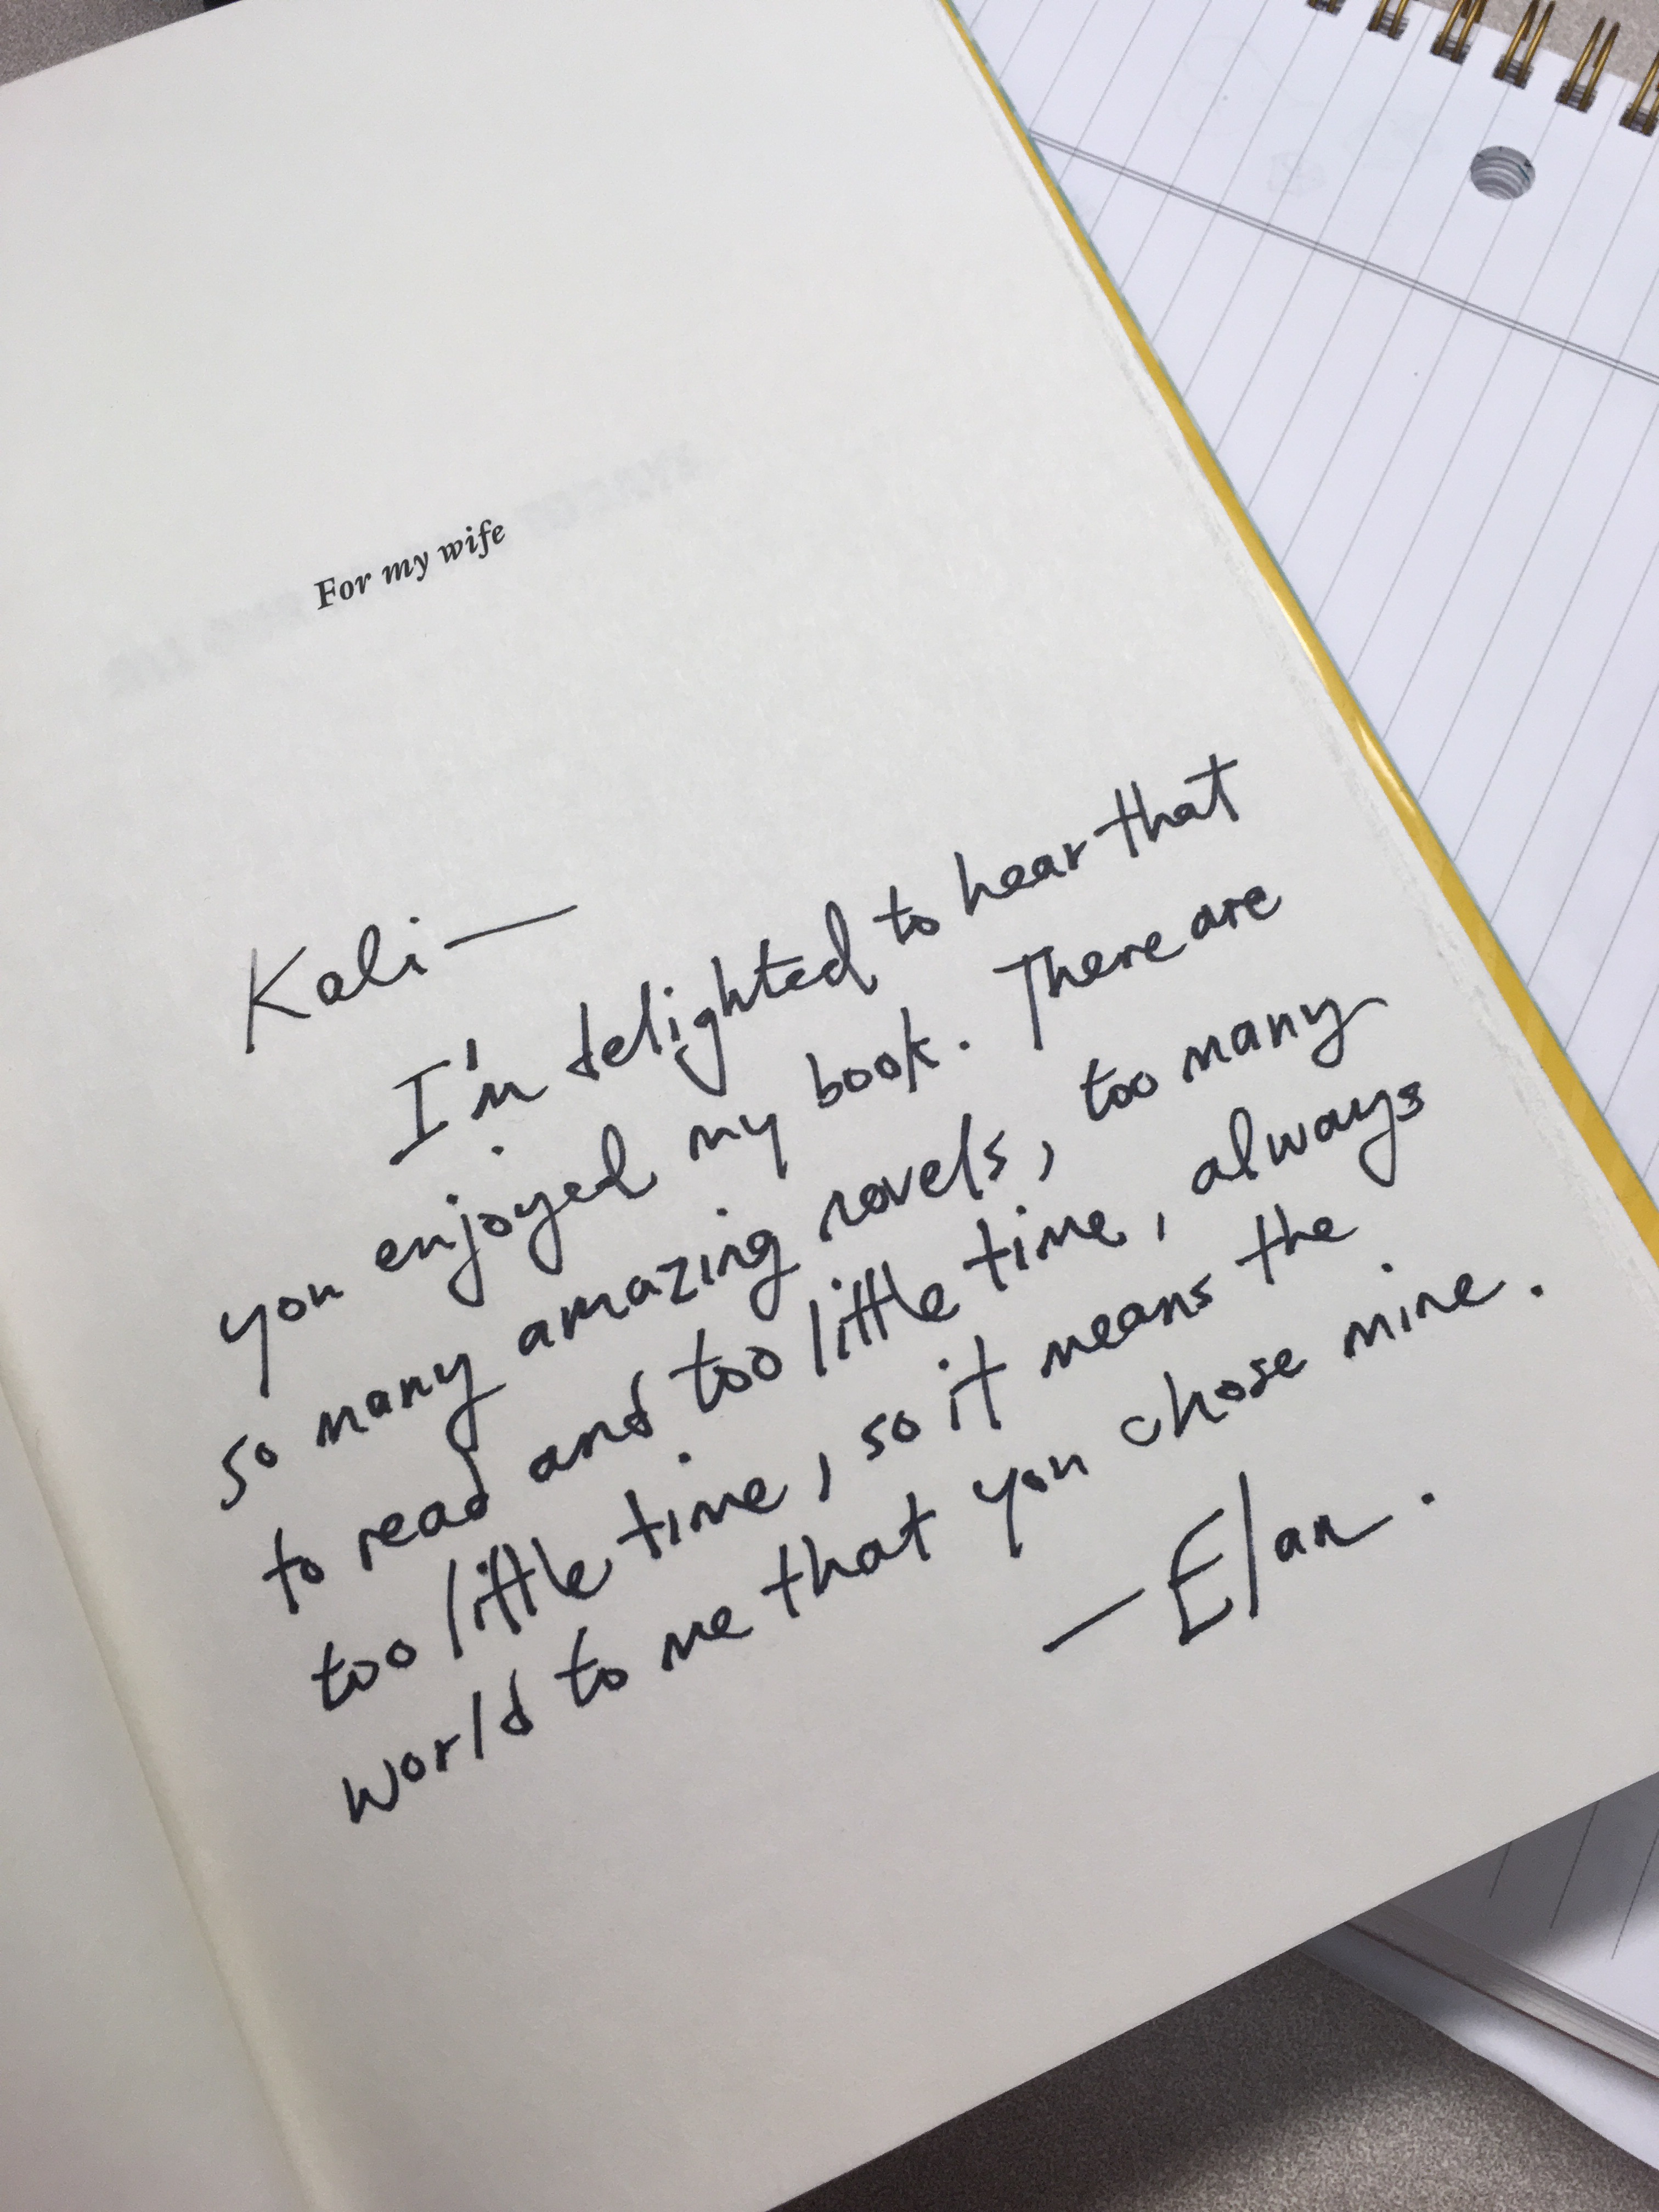 For my wife
Kali—
I'm delighted to hear that
you enjoyed my book. There are
so many amazing novels, too many
to read and too little time, always
too little time, so it means the
world to me that you chose mine.
—Elan.